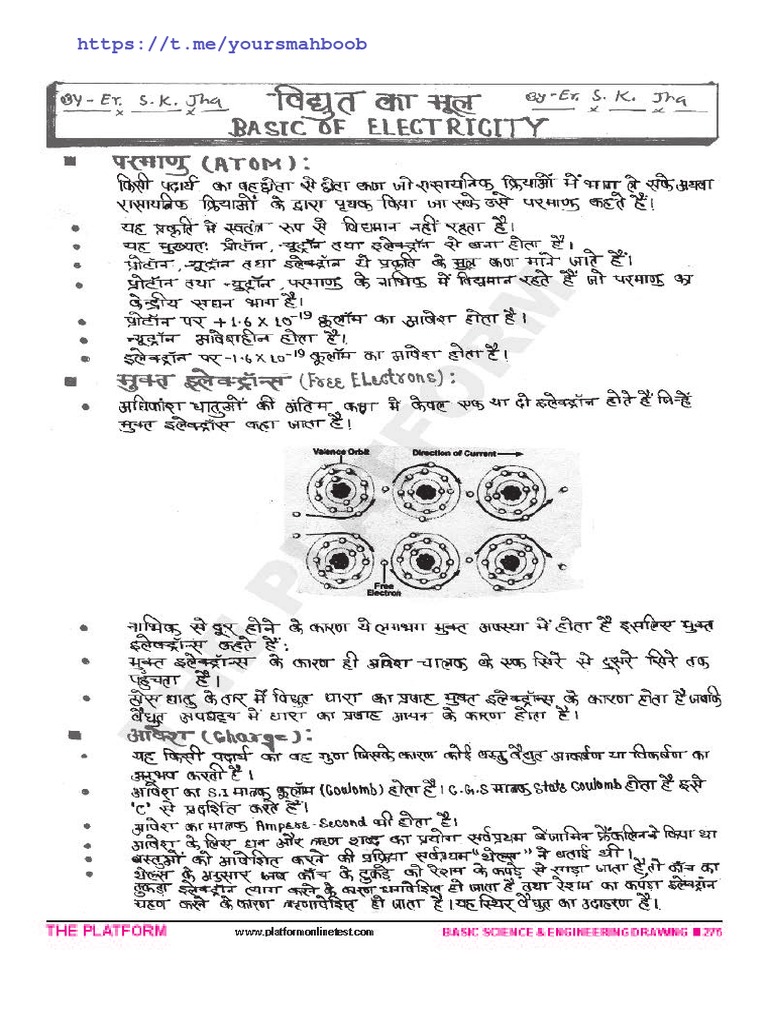 https://t.me/yoursmahboob
By-Er. S. K. Jha
विद्युत का मूल
By-Er. S. K. Jha
BASIC OF ELECTRICITY
परमाणु (ATOM):
किसी पदार्थ का वह छोटा से छोटा कण जो रासायनिक क्रियाओं में भाग ले सके अथवा
रासायनिक क्रियाओं के द्वारा पृथक किया जा सके उसे परमाणु कहते हैं।
यह प्रकृति में स्वतंत्र रूप से विद्यमान नहीं रहता है।
यह मुख्यतः प्रोटॉन, न्यूट्रॉन तथा इलेक्ट्रॉन से बना होता है।
प्रोटॉन, न्यूट्रॉन तथा इलेक्ट्रॉन ये प्रकृति के मूल कण माने जाते हैं।
प्रोटॉन तथा न्यूट्रॉन, परमाणु के नाभिक में विद्यमान रहते हैं जो परमाणु का
केन्द्रीय सघन भाग है।
प्रोटॉन पर +1.6 X 10⁻¹⁹ कूलॉम का आवेश होता है।
न्यूट्रॉन आवेशहीन होता है।
इलेक्ट्रॉन पर -1.6 X 10⁻¹⁹ कूलॉम का आवेश होता है।
मुक्त इलेक्ट्रॉन्स (Free Electrons):
अधिकांश धातुओं की अंतिम कक्षा में केवल एक या दो इलेक्ट्रॉन होते हैं जिन्हें
मुक्त इलेक्ट्रॉंस कहा जाता है।
Valence Orbit
Direction of Current
Free
Electron
नाभिक से दूर होने के कारण ये लगभग मुक्त अवस्था में होता है इसलिए मुक्त
इलेक्ट्रॉन्स कहते हैं;
मुक्त इलेक्ट्रॉन्स के कारण ही आवेश चालक के एक सिरे से दुसरे सिरे तक
पहुँचता है।
ठोस धातु के तार में विद्युत धारा का प्रवाह मुक्त इलेक्ट्रॉन्स के कारण होता है जबकि
वैद्युत अपघट्य में धारा का प्रवाह आयन के कारण होता है।
आवेश (Charge):
यह किसी पदार्थ का वह गुण जिसके कारण कोई वस्तु वैद्युत आकर्षण या विकर्षण का
अनुभव करती है।
आवेश का S.I मात्रक कूलॉम (Coulomb) होता है। C.G.S मात्रक State Coulomb होता है इसे
'C' से प्रदर्शित करते हैं।
आवेश का मात्रक Ampere-Second भी होता है।
आवेश के लिए धन और ऋण शब्द का प्रयोग सर्वप्रथम बेंजामिन फ्रैंकलिन ने किया था
वस्तुओं को आवेशित करने की प्रक्रिया सर्वप्रथम "थेल्स" ने बताई थी।
थेल्स के अनुसार जब काँच के टुकड़े को रेशम के कपड़े से रगड़ा जाता है, तो काँच का
टुकड़ा इलेक्ट्रॉन त्याग करने के कारण धनावेशित हो जाता है तथा रेशम का कपड़ा इलेक्ट्रॉन
ग्रहण करने के कारण ऋणावेशित हो जाता है। यह स्थिर वैद्युत का उदाहरण है।
THE PLATFORM
THE PLATFORM
www.platformonlinetest.com
BASIC SCIENCE & ENGINEERING DRAWING ■ 276